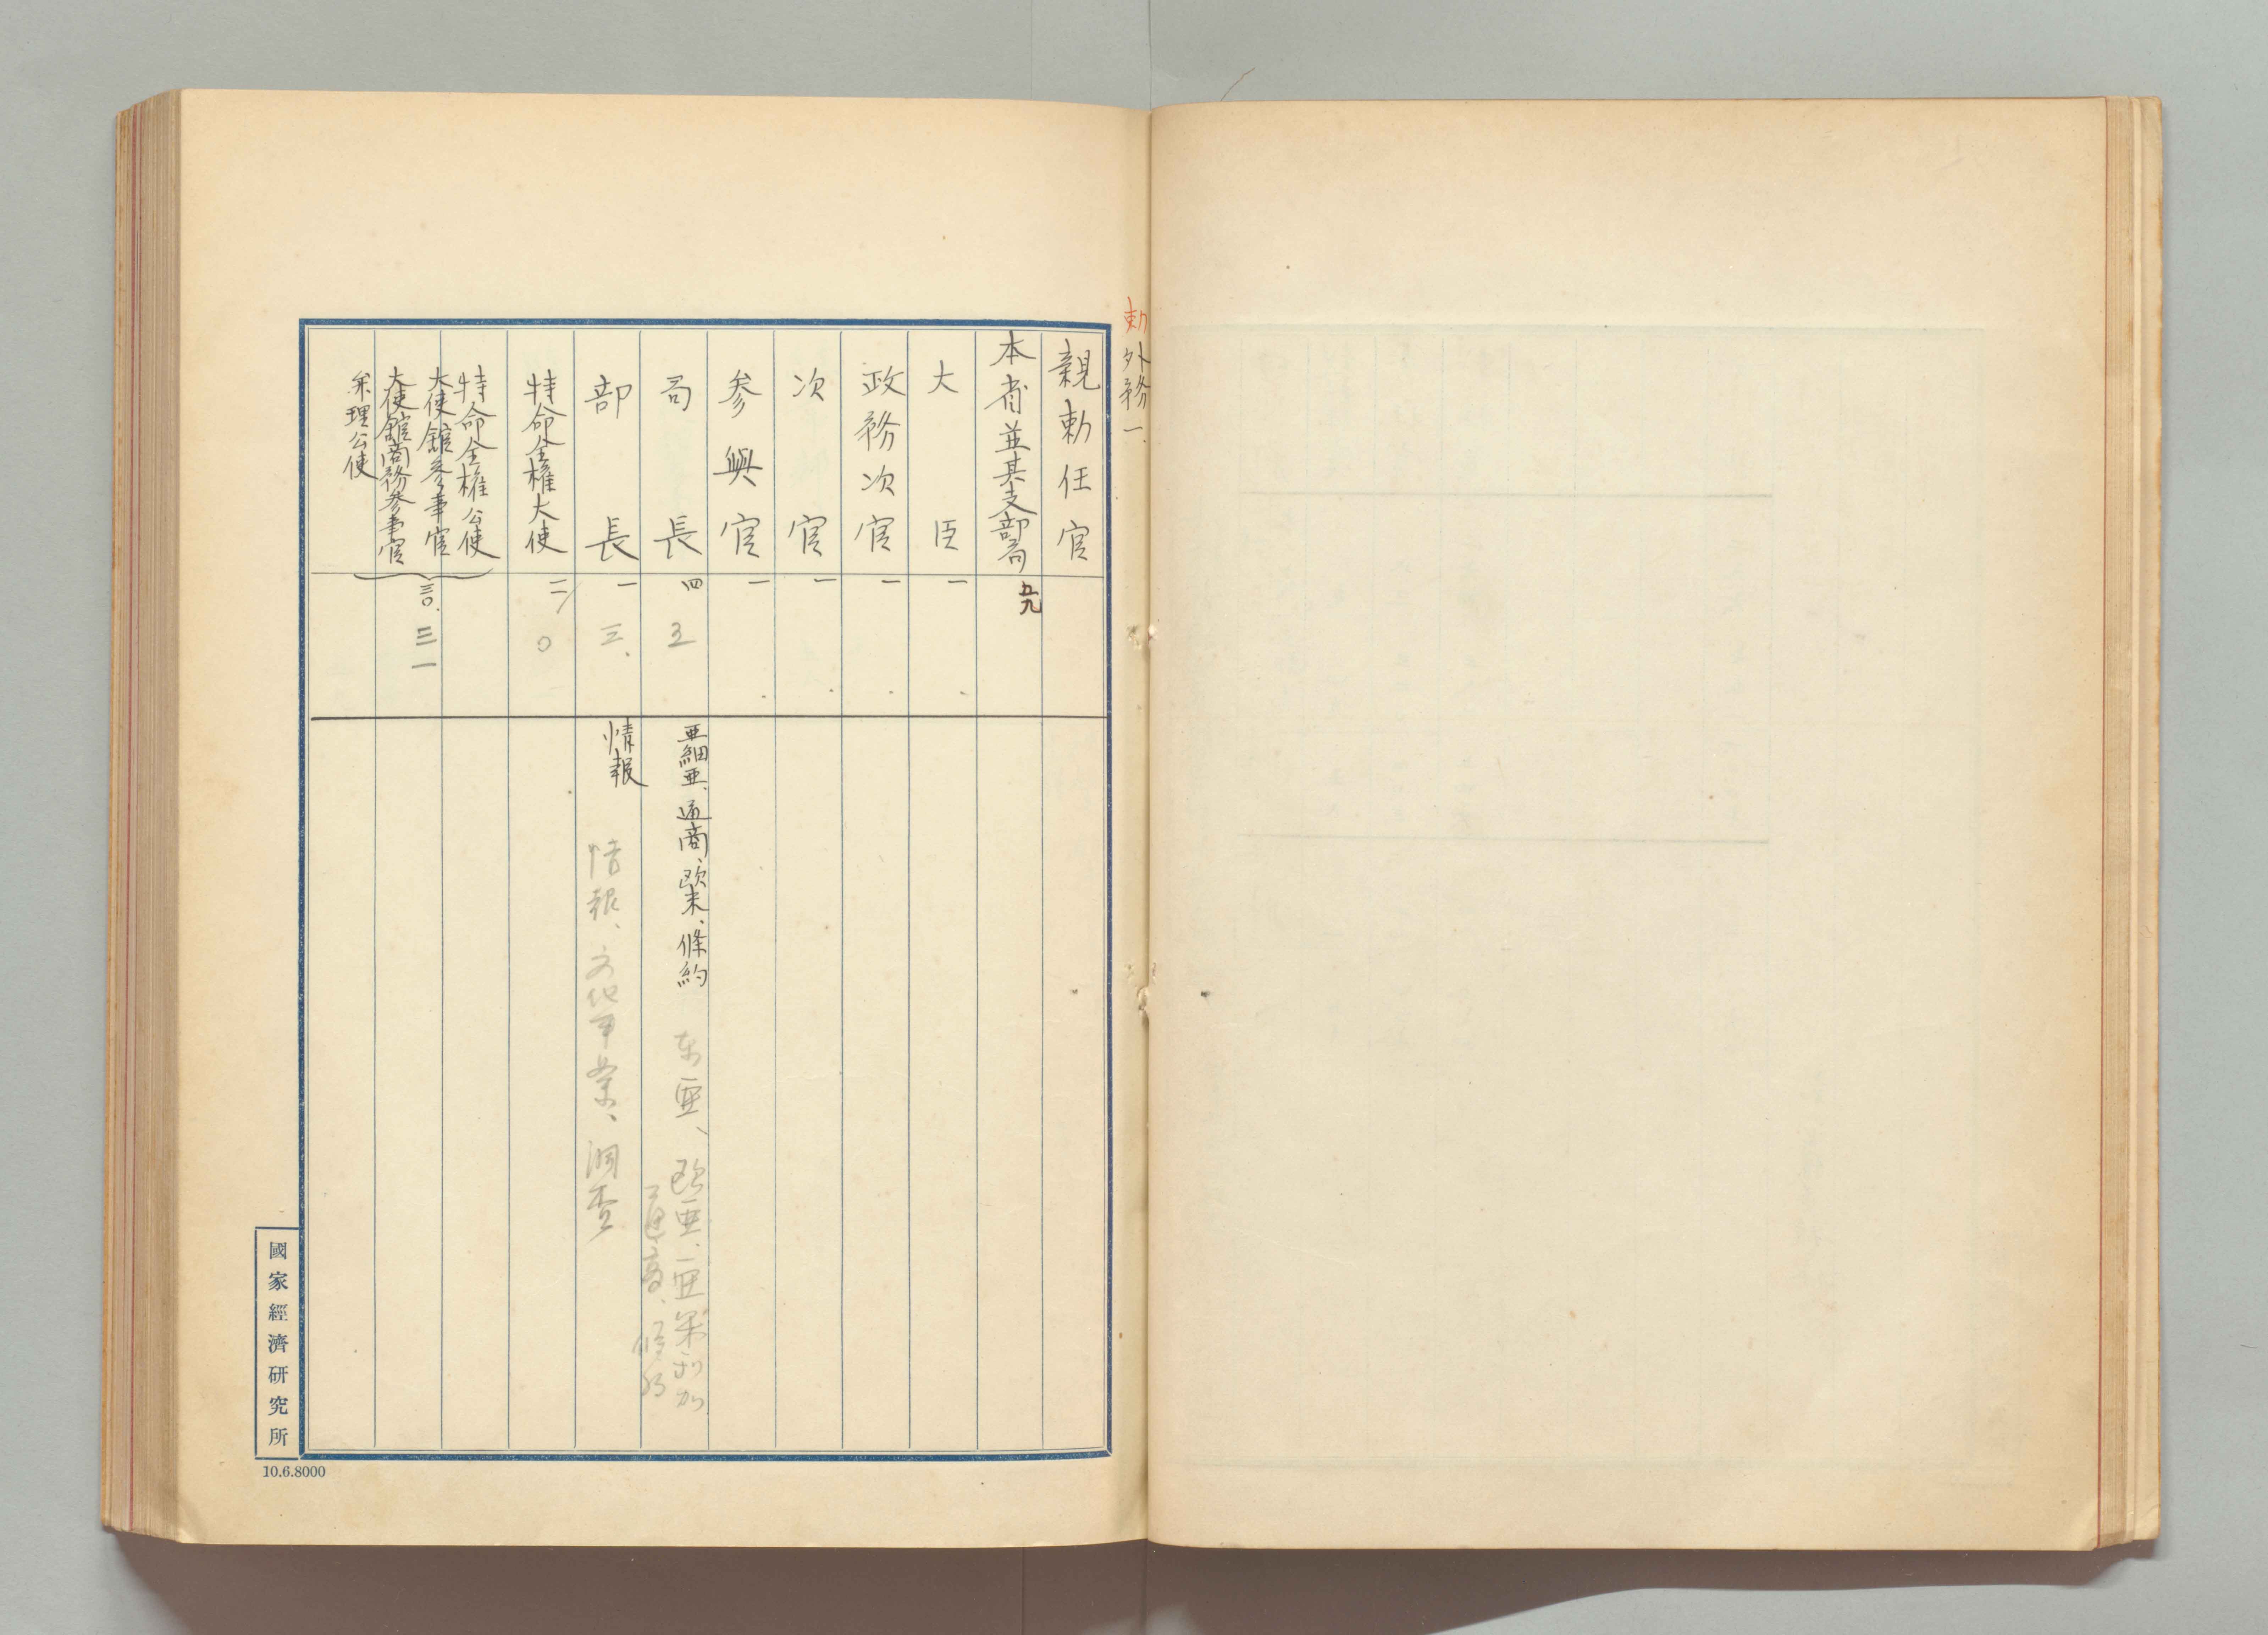 勅 外務 一.
親勅任官
本省並其支部局 五九
大臣 一
政務次官 一
次官 一
参与官 一
局長 四 五 亜細亜、通商、欧米、條約 东亜、欧亜、亜米利加
通商、條約
部長 一 三、 情報 情報、文化事業、調査
特命全権大使 一二 〇
特命全権公使
大使館参事官
大使館商務参事官
弁理公使
三〇. 三一
國家經濟研究所
10.6.8000